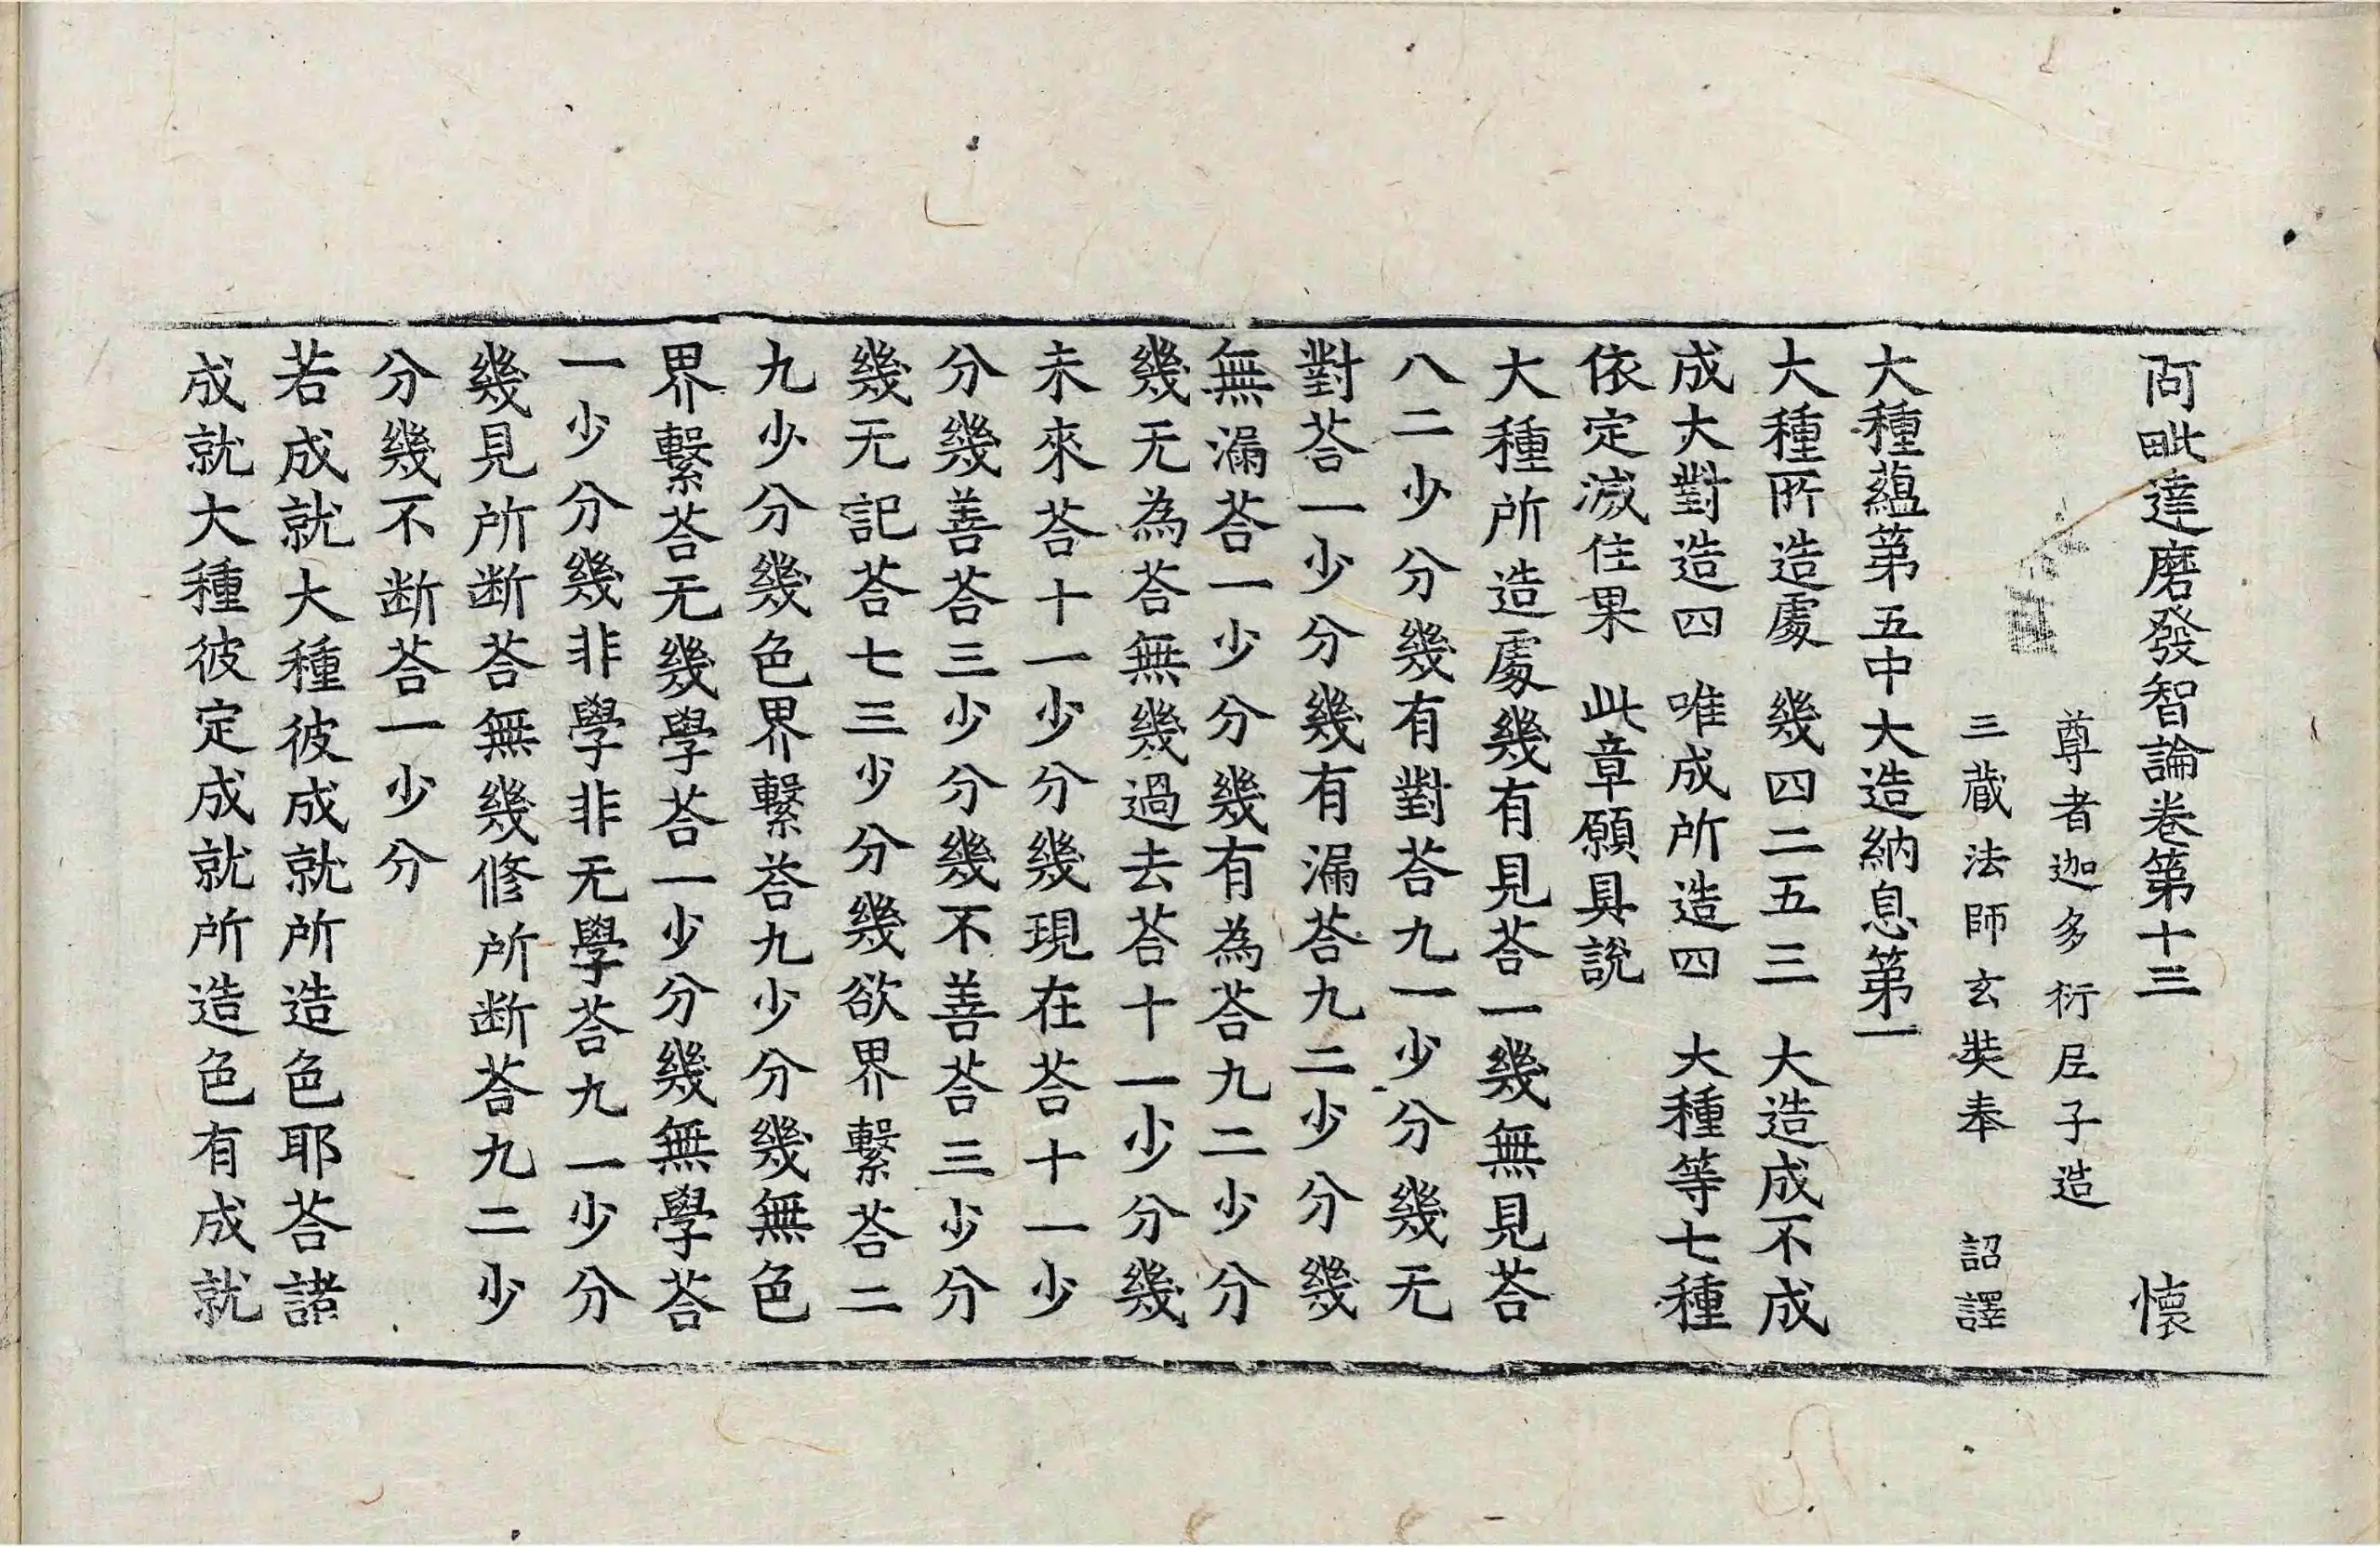 阿毗達磨發智論卷第十三 懷
尊者迦多衍𡰱子造
三藏法師玄奘奉 詔譯
大種藴第五中大造納息第一
大種所造處 幾四二五三 大造成不成
成大對造四 唯成所造四 大種等七種
依定滅住果 此章願具說
大種所造處幾有見荅一幾無見荅
八二少分幾有對荅九一少分幾无
對荅一少分幾有漏荅九二少分幾
無漏荅一少分幾有為荅九二少分
幾无為荅無幾過去荅十一少分幾
未來荅十一少分幾現在荅十一少
分幾善荅三少分幾不善荅三少分
幾无記荅七三少分幾欲界繫荅二
九少分幾色界繫荅九少分幾無色
界繫荅无幾學荅一少分幾無學荅
一少分幾非學非无學荅九一少分
幾見所断荅無幾修所断荅九二少
分幾不断荅一少分
若成就大種彼成就所造色耶荅諸
成就大種彼定成就所造色有成就